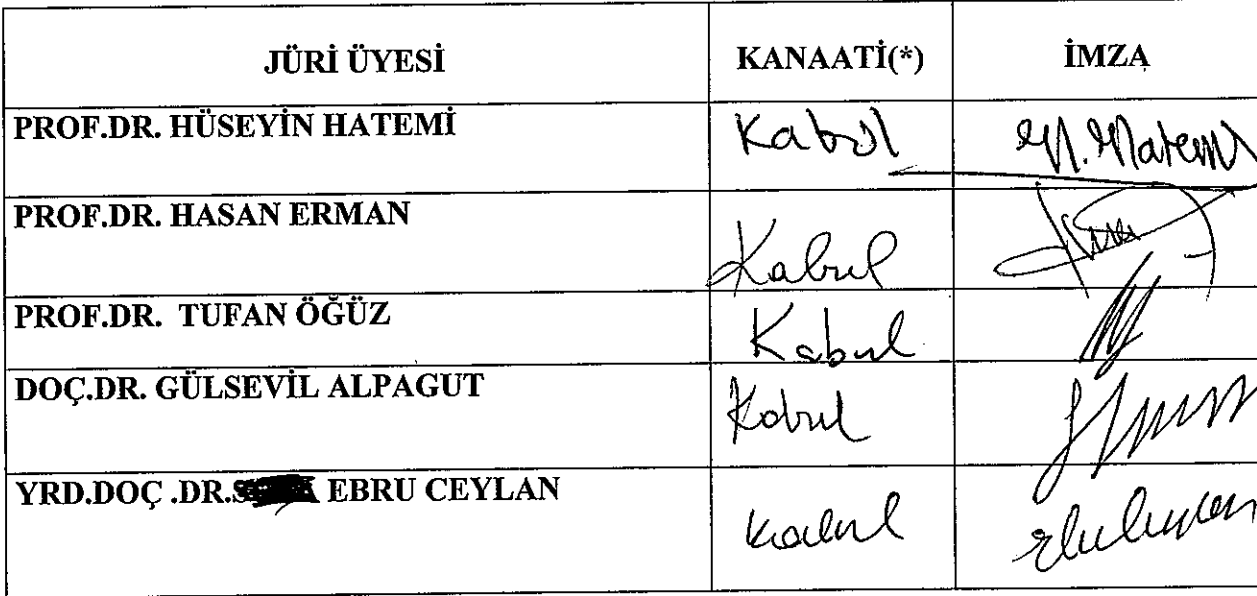 JÜRİ ÜYESİ KANAATİ(*) İMZA
PROF.DR. HÜSEYİN HATEMİ Kabul H. Hatemi
PROF.DR. HASAN ERMAN Kabul
PROF.DR. TUFAN ÖĞÜZ Kabul
DOÇ.DR. GÜLSEVİL ALPAGUT Kabul
YRD.DOÇ .DR. EBRU CEYLAN Kabul